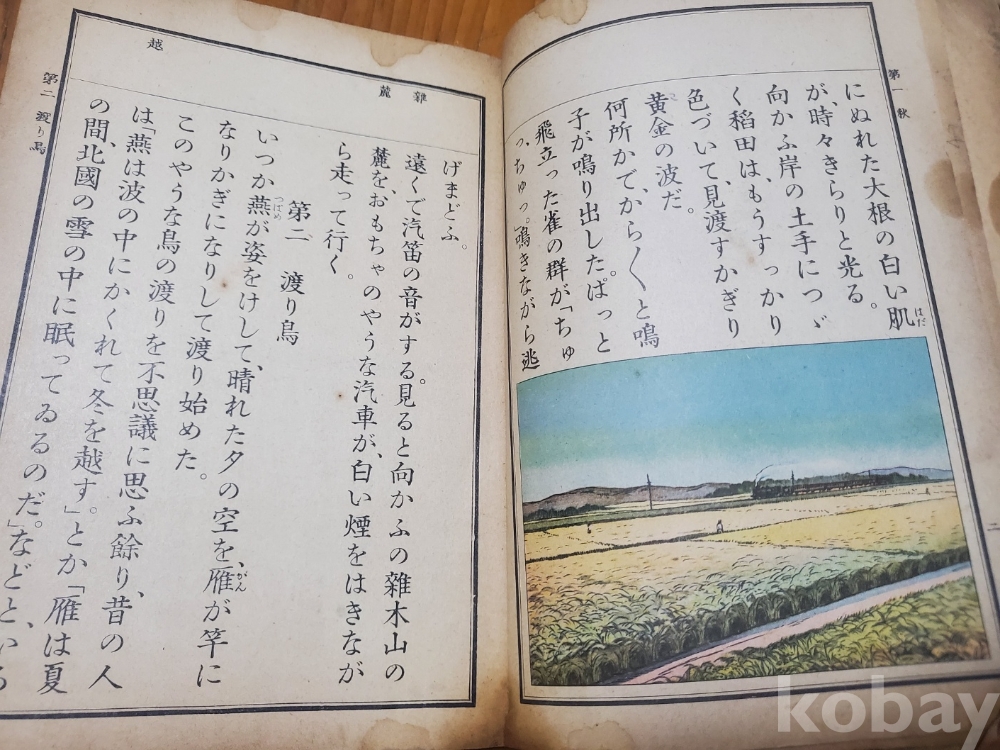 第一 秋
にぬれた大根の白い肌
はだ
が、時々きらりと光る。
向かふ岸の土手につゞ
く稻田は、もうすっかり
色づいて、見渡すかぎり
黄金の波だ。
何所かで、から〱と鳴
子が鳴り出した。ぱっと
飛立った雀の群が「ちゅ
っ、ちゅっ。」鳴きながら逃
雜
麓
げまどふ。
遠くで汽笛の音がする。見ると向かふの雜木山の
麓を、おもちゃのやうな汽車が、白い煙をはきなが
ら走って行く。
第二 渡り鳥
いつか燕が姿をけして、晴れた夕の空を、雁が竿に
つばめ
がん
なりかぎになりして渡り始めた。
このやうな鳥の渡りを不思議に思ふ餘り、昔の人
は「燕は波の中にかくれて冬を越す。」とか「雁は夏
の間、北國の雪の中に眠ってゐるのだ。」などと、いろ
越
第二 渡り鳥
kobay